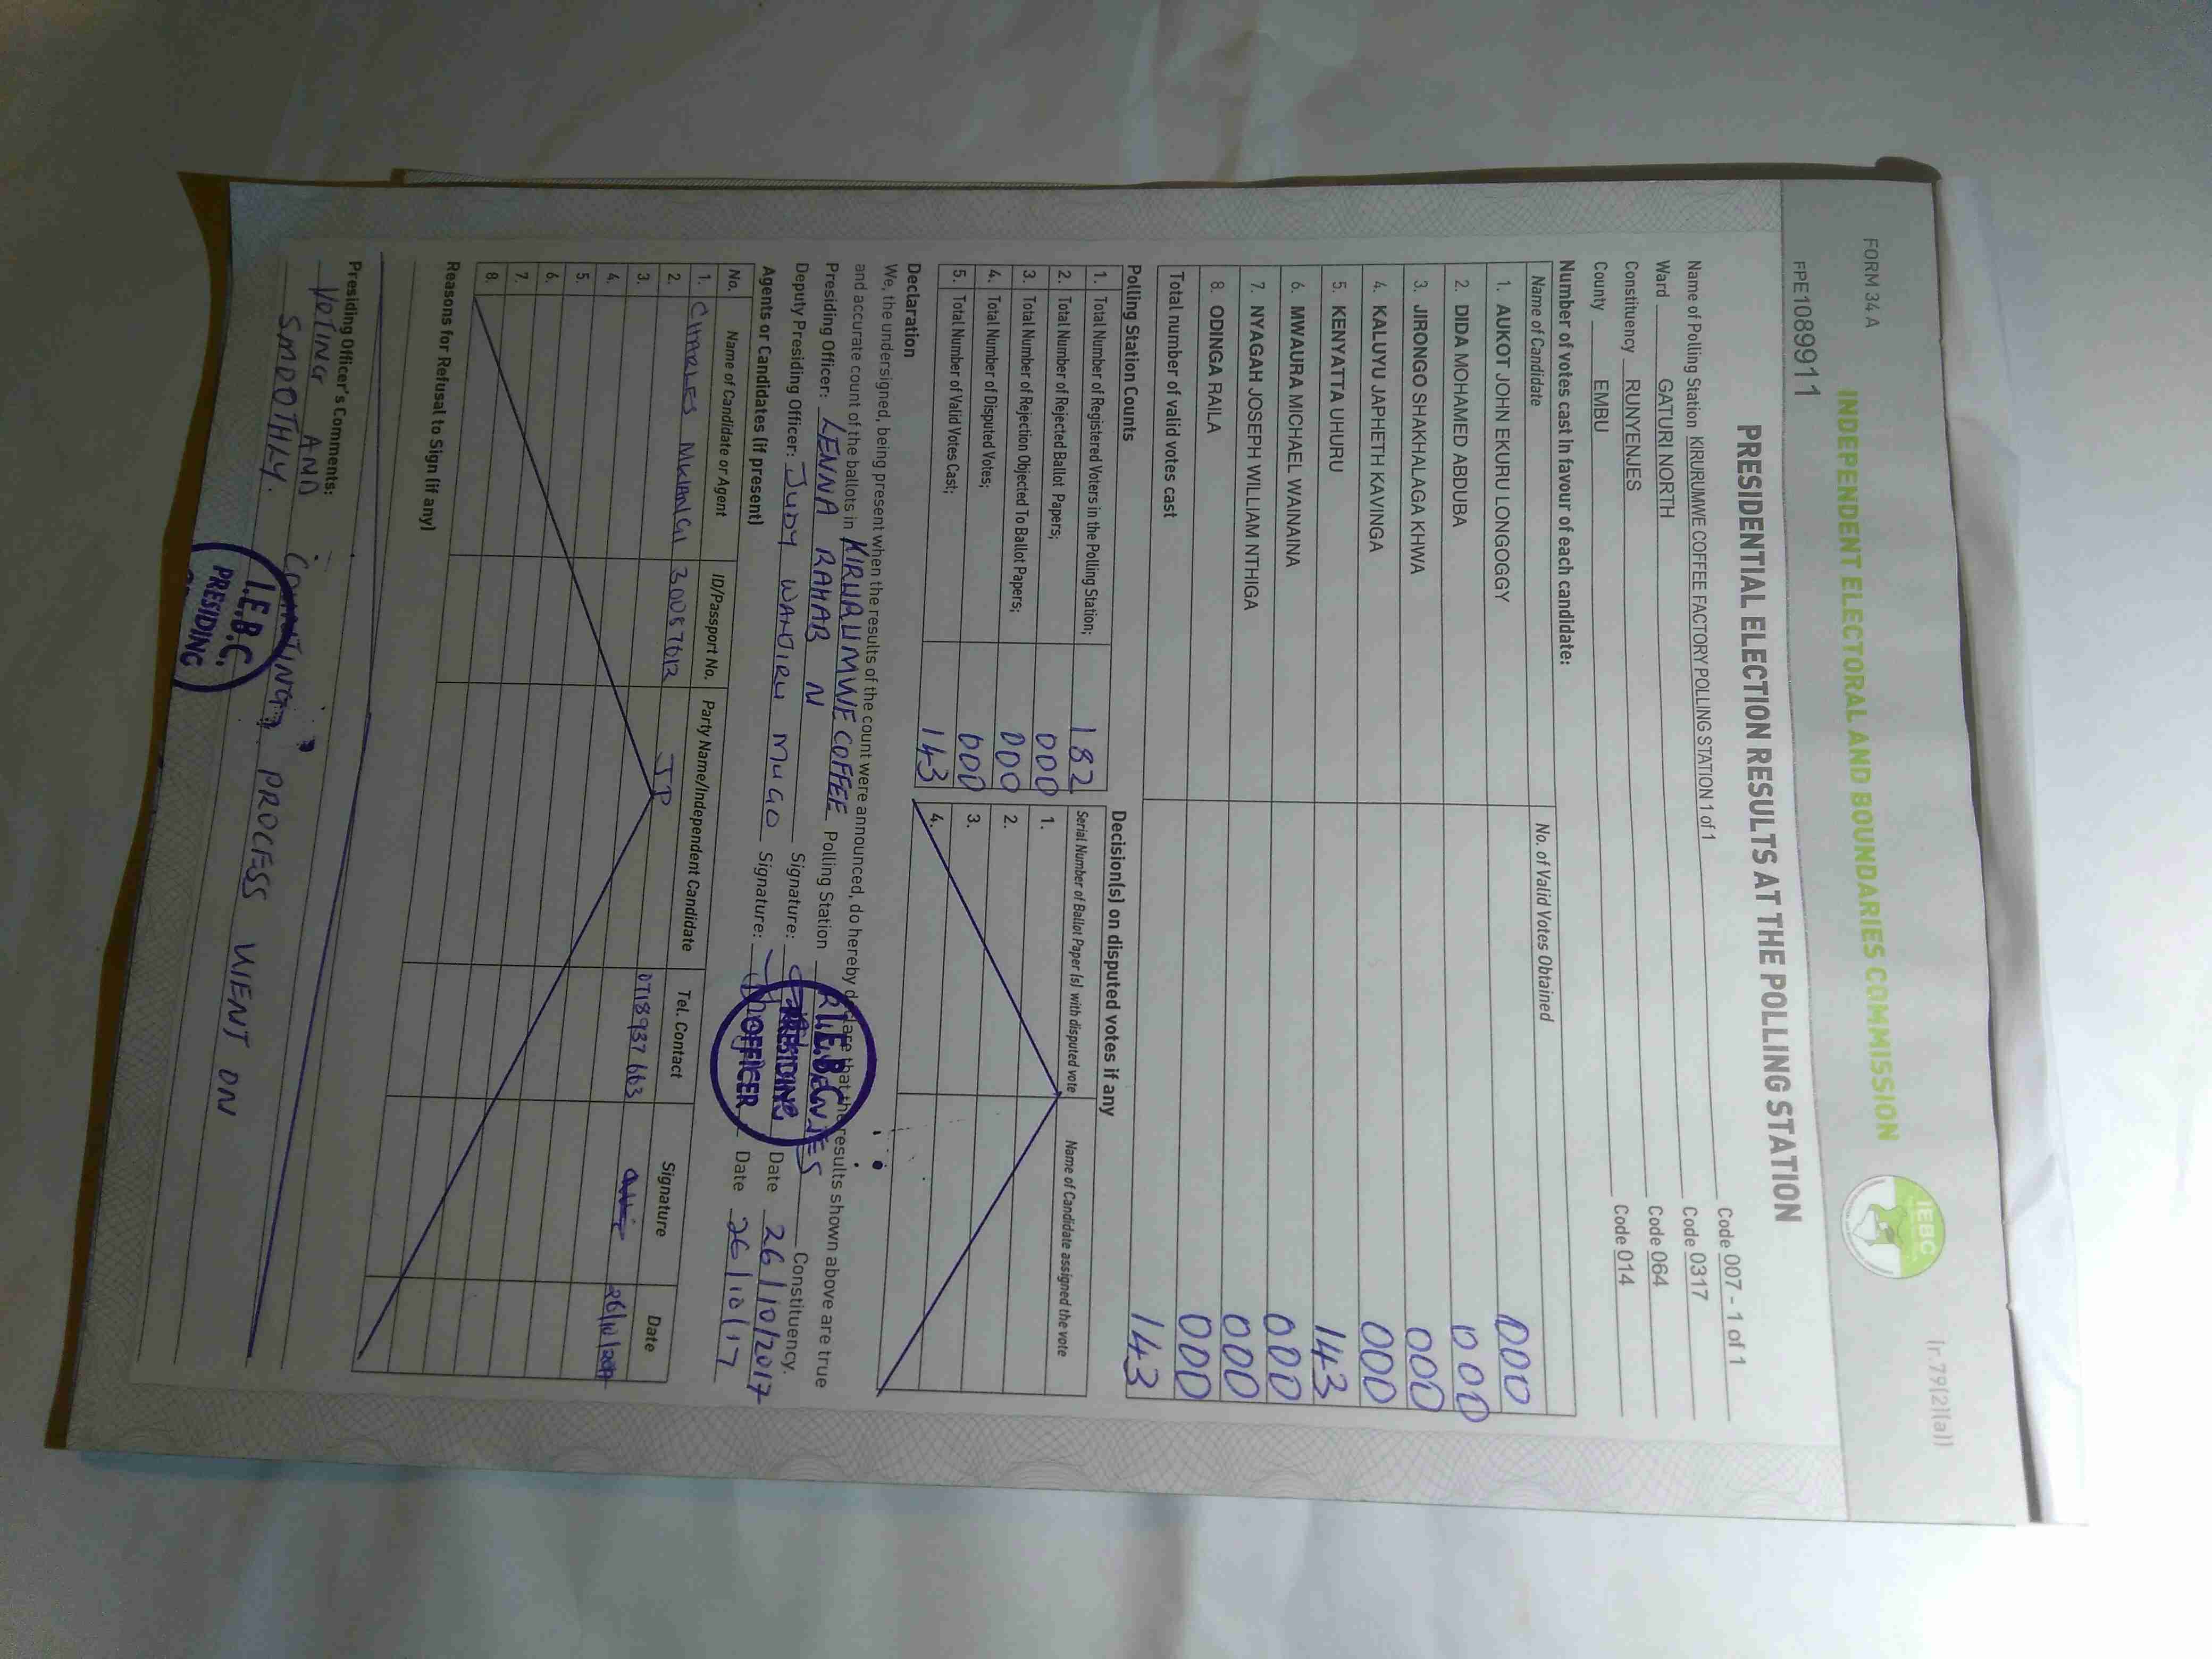 FORM 34 A
(r.79(2)(a))
INDEPENDENT ELECTORAL AND BOUNDARIES COMMISSION
IEBC
FPE1089911
PRESIDENTIAL ELECTION RESULTS AT THE POLLING STATION
Name of Polling Station KIRURUMWE COFFEE FACTORY POLLING STATION 1 of 1 Code 007 - 1 of 1
Ward GATURI NORTH Code 0317
Constituency RUNYENJES Code 064
County EMBU Code 014
Number of votes cast in favour of each candidate:
Name of Candidate No. of Valid Votes Obtained
1. AUKOT JOHN EKURU LONGOGGY 000
2. DIDA MOHAMED ABDUBA 000
3. JIRONGO SHAKHALAGA KHWA 000
4. KALUYU JAPHETH KAVINGA 000
5. KENYATTA UHURU 143
6. MWAURA MICHAEL WAINAINA 000
7. NYAGAH JOSEPH WILLIAM NTHIGA 000
8. ODINGA RAILA 000
Total number of valid votes cast 143
Polling Station Counts
1. Total Number of Registered Voters in the Polling Station; 182
2. Total Number of Rejected Ballot Papers; 000
3. Total Number of Rejection Objected To Ballot Papers; 000
4. Total Number of Disputed Votes; 000
5. Total Number of Valid Votes Cast; 143
Decision(s) on disputed votes if any
Serial Number of Ballot Paper (s) with disputed vote Name of Candidate assigned the vote
1.
2.
3.
4.
Declaration
We, the undersigned, being present when the results of the count were announced, do hereby declare that the results shown above are true
and accurate count of the ballots in KIRURUMWE COFFEE Polling Station Constituency.
Presiding Officer: LENNA RAHAB N Signature: Date 26/10/2017
Deputy Presiding Officer: JUDY WANJIRU MUGO Signature: Date 26/10/17
I.E.B.C.
PRESIDING
OFFICER
Agents or Candidates (if present)
No. Name of Candidate or Agent ID/Passport No. Party Name/Independent Candidate Tel. Contact Signature Date
1. CHARLES JP 0718937663 26/10/2017
2.
3.
4.
5.
6.
7.
8.
Reasons for Refusal to Sign (if any)
Presiding Officer's Comments:
VOTING AND COUNTING PROCESS WENT ON
SMOOTHLY.
I.E.B.C.
PRESIDING